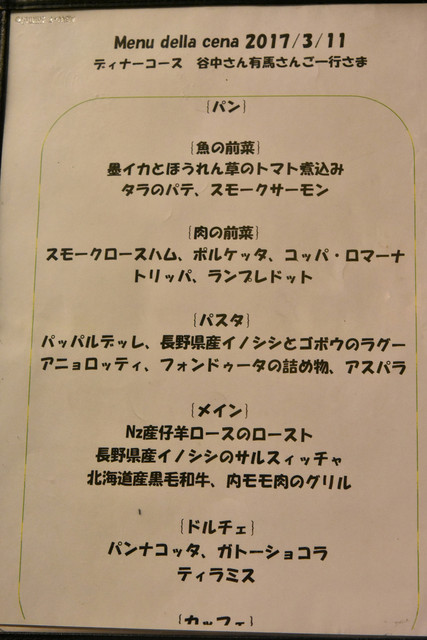 Menu della cena 2017/3/11
ディナーコース 谷中さん有馬さんご一行さま
{パン}
{魚の前菜}
墨イカとほうれん草のトマト煮込み
タラのパテ、スモークサーモン
{肉の前菜}
スモークロースハム、ポルケッタ、コッパ・ロマーナ
トリッパ、ランプレドット
{パスタ}
パッパルデッレ、長野県産イノシシとゴボウのラグー
アニョロッティ、フォンドゥータの詰め物、アスパラ
{メイン}
Nz産仔羊ロースのロースト
長野県産イノシシのサルスィッチャ
北海道産黒毛和牛、内モモ肉のグリル
{ドルチェ}
パンナコッタ、ガトーショコラ
ティラミス
{カッフェ}